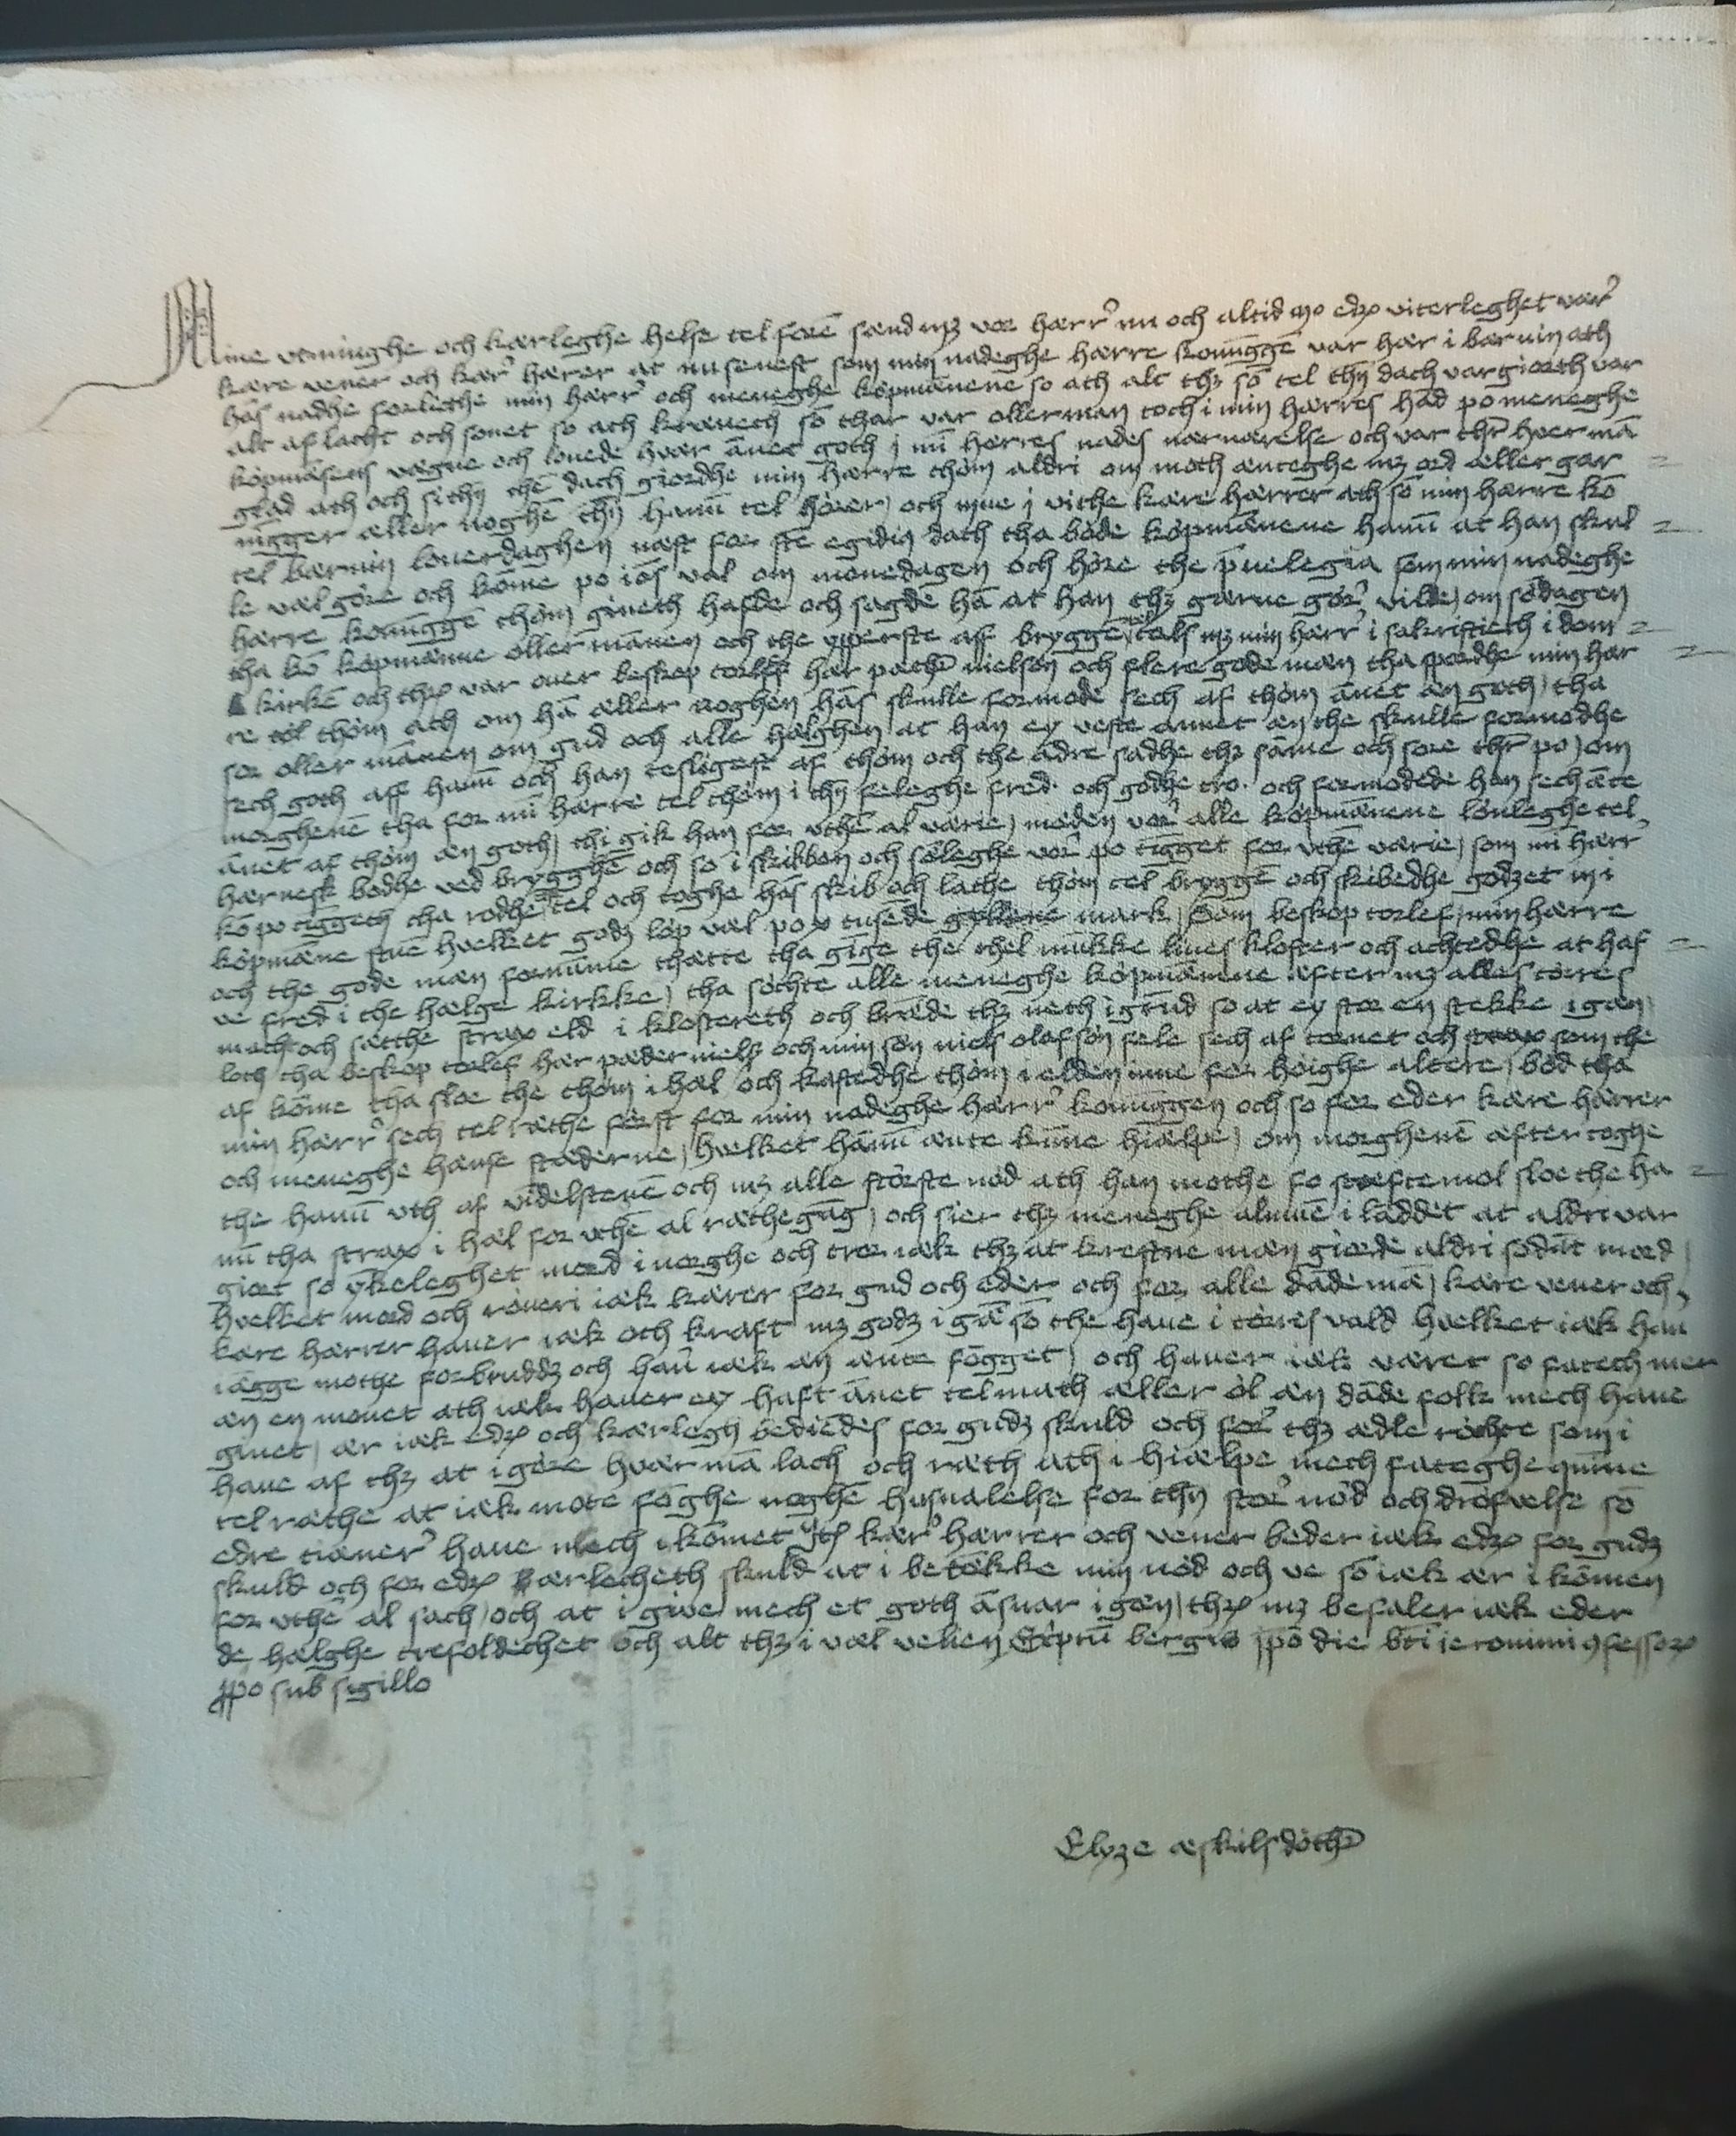 Mine vtminghe och kærleghe helse tel foren sænd mz vor hærr nu och altid mo edr viterleghet vær
kære vener och kær hærer at nu senest som min nadeghe hærre konu̅gge̅ var hær i bærvin ath
ha̅s nadhe forlicthe min hærr och meneghe køpmænene so ath alt thz so̅ tel thn̅ dach var giorth var
alt aflacht och sonet so ath krænech so̅ thar var ollerman toch i min hærres ha̅d po meneghe
køpmæsens vægne och louede hvar a̅net goth i mi̅ hærres nades nærværelse och var thr hver ma̅
glad ath och sithn̅ the̅ dach giordhe min hærre thøm aldri om moth ænteghe mz ord æller gær
ni̅gger æller noghe̅ thn̅ hanu̅ tel hører och mue i vithe kære hærrer ath so̅ min hærre ko̅
tel bærvin louerdaghen næst for ste egidii dach tha bøde køpmænene hanu̅ at han skul
le væl gøre och ko̅me po iøs val om monedagen och høre the p̅uelegia som min nadeghe
hærre konu̅gge̅ thøm giueth hafde och sagde ha̅ at han thz gærne gør vilde om sødagen
tha ko̅ køpmænne ollermanen och the ypperste aff brygge̅ tels mz min hærr i sakristieth i dom
kirke̅ och thr var ouer beskop torleff hær pæther nielsøn och flere gode mæn tha spordhe min hær
re tel thøm ath om ha̅ æller noghen ha̅s skulle formode sech af thøm a̅net æn goth tha
sor oller manen om gud och alle hælghen at han ey veste annet æn the skulle formodhe
sech goth aff hanu̅ och han tesligest af thøm och the a̅dre sadhe thz sa̅me och sore thr po om
morghene̅ tha for mi̅ hærre tel thøm i thn̅ feleghe fred och godhe tro och formodede han sech æ̅te
a̅net af thøm æn goth thi gik han for vthe̅ al værie meden vor alle køpmænene lønleghe tel
hærnesk bodhe ved brygghe̅ och so i skibben och søleghe vor po ti̅gget for vthe̅ værie som mi̅ hærr
ko̅ po ti̅ggeth tha rodhe the̅ tel och toghe ha̅s skib och lathe thøm tel brygge̅ och skibedhe godzet in i
køpmæne stue hvelket godz løp væl po x tusende gyllene mark Som beskop torlef min hærre
och the gode mæn fornu̅me thætte tha gi̅ge the thel mu̅kke liues kloster och achtedhe at haf
ve fred i the hælge kirkke tha søchte alle meneghe køpmænne æfter mz alles tørres
macht och sætthe strax eld i klostereth och bræ̅de thz neth i gru̅d so at ey stor en stekke i gæn
loch tha beskop torlef hær pæder niels och min søn niels olafsøn fele sech af tornet och strax som the
af ko̅me tha sloe the thøm i hæl och kastedhe thøm i elden inne for høighe altere bød tha
min hærr sech tel ræthe først for min nadeghe hærr konu̅ggen och so for eder kære hærrer
och meneghe hænse stæderne hvelket hanu̅ ænte ku̅ne hiælpe om morghene̅ æfter toghe
the hanu̅ vth af vi̅delstene̅ och mz alle største nød ath han mothe fo skreftemol sloe the ha
nu̅ tha strax i hæl for vthe̅ al ræthega̅g och sier thz meneghe almue̅ i la̅ddet at aldri var
giort so ykeleghet mord i norghe och tror iæk thz at krestne mæn giorde aldri soda̅t mord
hvelket mord och røueri iæk kærer for gud och eder och for alle da̅de mæ̅ kære vener och
kære hærrer hauer iæk och kraft mz godz i gæ̅ so̅ the haue i tørres vald hvelket iæk hau
i a̅gge mothe forbruddz och hau̅ iæk æn ænte fo̅gget och hauer iæk været so fatech mer
æn en monet ath iæk hauer ey haft a̅net tel math æller øl æn da̅de folk mech haue
giuet ær iæk edr och kærlegh bediendes for gudz skuld och for thz ædle rochte som i
haue af thz at i gøre hvær ma̅ lach och ræth ath i hiælpe mech fateghe qui̅ne
tel ræthe at iæk mote fo̅ghe noghe̅ husualelse for thn̅ stor nød och drøfvelse so̅
edre tiæner haue mech i ko̅met Ith kær hærrer och vener beder iæk edr for gudz
skuld och for edr kærlecheth skuld at i betække min nød och ve so̅ iæk ær i ko̅men
for vthe̅ al sach och at i giue mech et goth a̅suar i gæn thr mz befaler iæk eder
de hælghe trefoldechet och alt thz i væl velien Sc̅ptu̅ bergis ip̅o die bt̅i ieronimi ꝯfessor
ip̅o sub sigillo
Elyze æskilsdoth